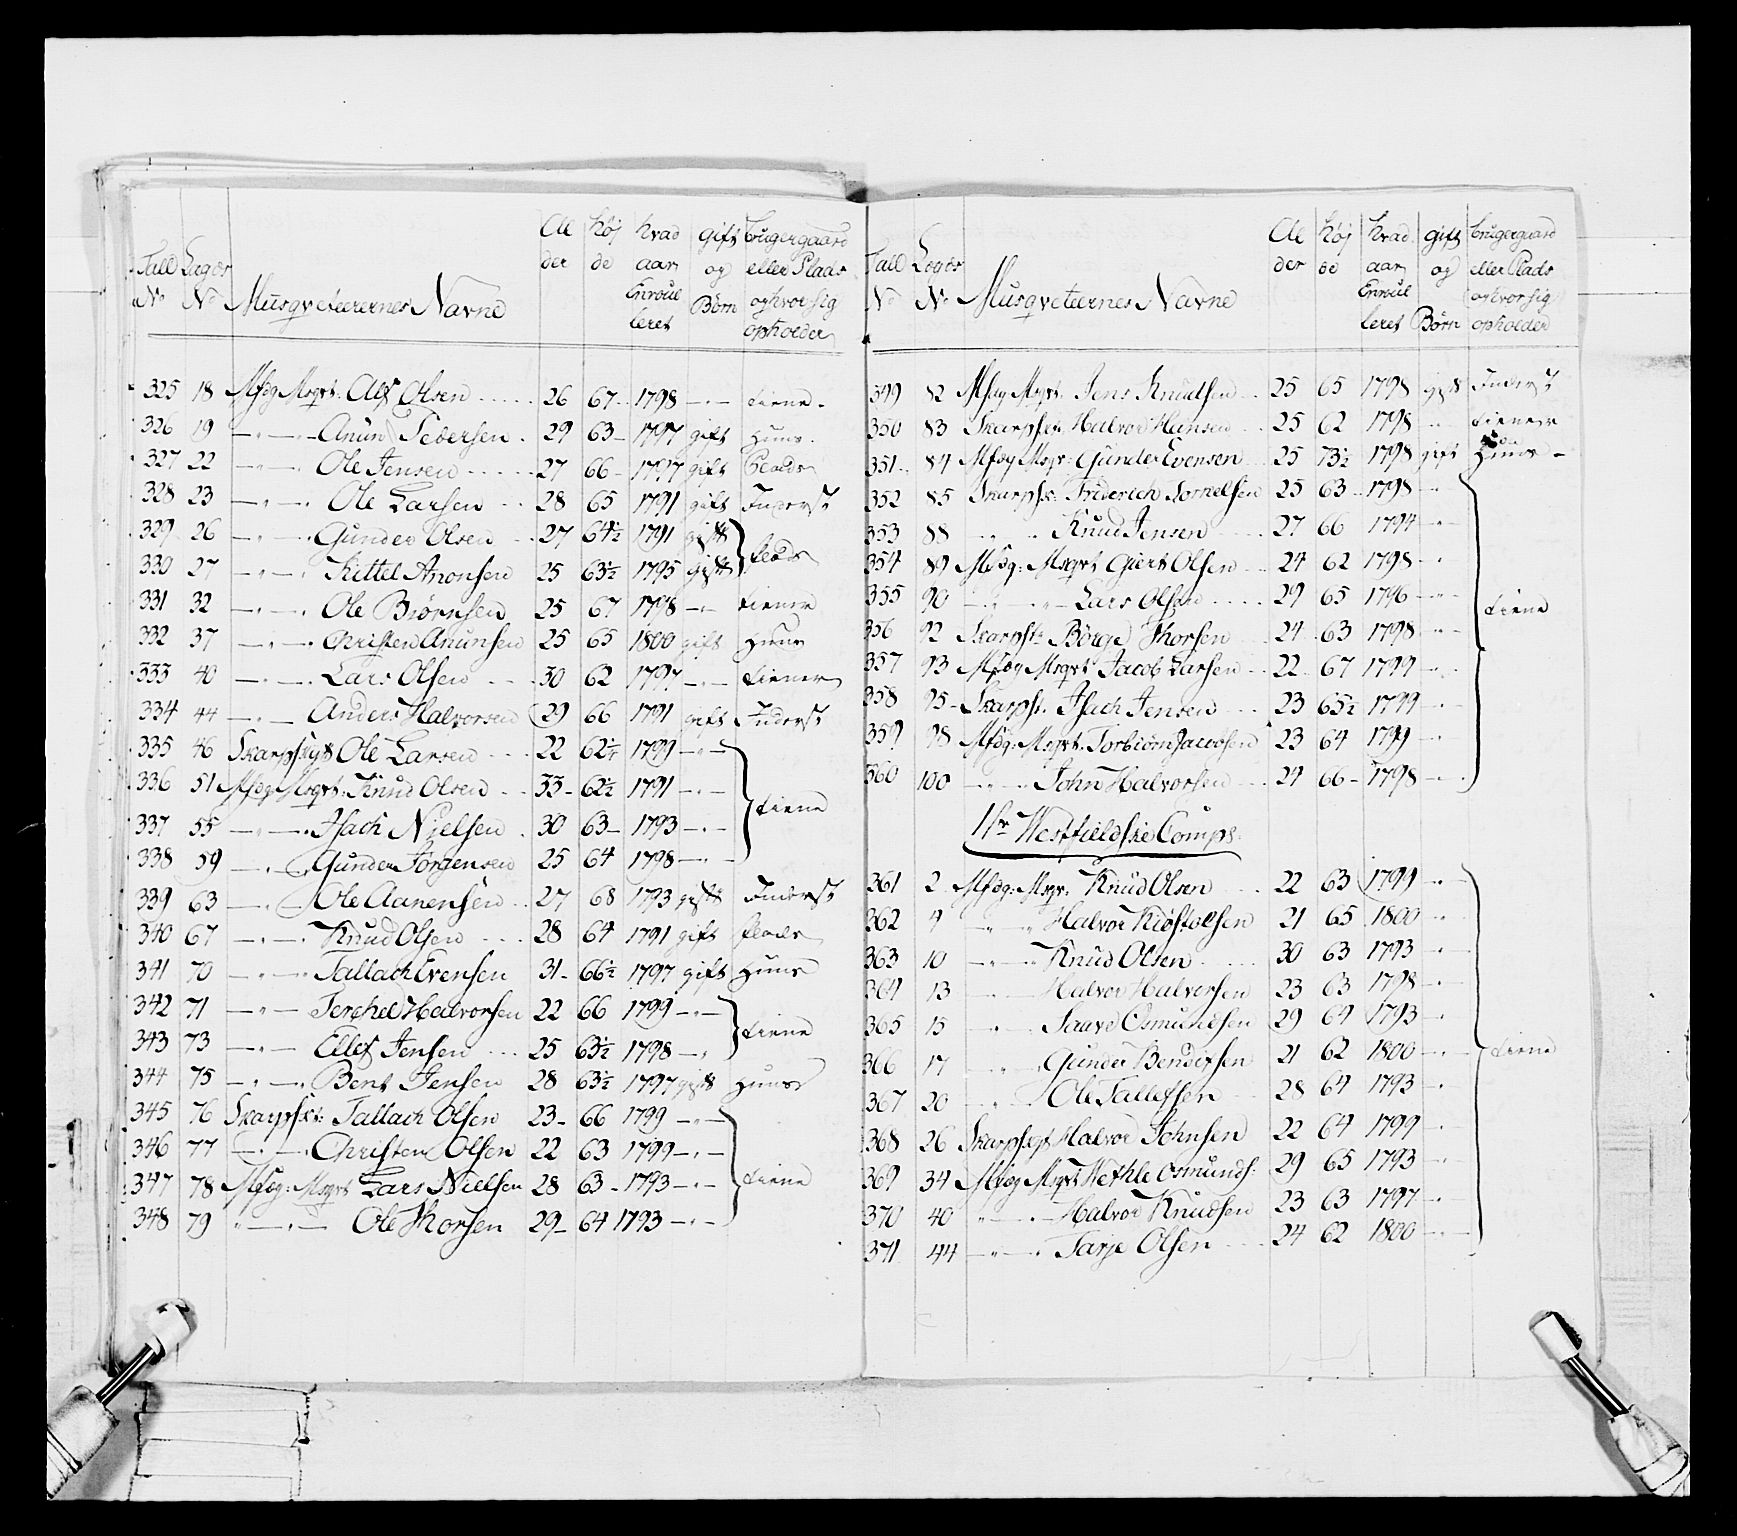 Tall No Lægds No Musqveteerernes Navne Alder højde hvad aar Enroulleret gift og Børn bruger gaard eller Plads og hvor sig opholder
325 18 Mfdg Msqvt: Alf Olsen 26 67 1798 —"— tiene
326 19 —"— Anun Pedersen 29 63 1797 gift huus
327 22 —"— Ole Jensen 27 66 1797 gift Plads
328 23 —"— Ole Larsen 28 65 1791 gift Inderst
329 26 —"— Gunder Olsen 27 64½ 1791 gift
330 27 —"— Kittel Anonsen 25 63½ 1795 gift } Plads
331 32 —"— Ole Biørnsen 25 67 1798 —"— tiener
332 37 —"— Christen Anunsen 25 65 1800 gift huus
333 40 —"— Lars Olsen 30 62 1797 —"— tiener
334 44 —"— Anders Halvorsen 29 66 1791 gift Inderst
335 46 Skarpskyt Ole Larsen 22 62¼ 1799 —"—
336 51 Mfdg Msqvt: Knud Olsen 33 62½ 1791 —"—
337 55 —"— Isach Nielsen 30 63 1793 —"— } tiene
338 59 —"— Gunder Jørgensen 25 64 1798 —"—
339 63 —"— Ole Aanensen 27 68 1793 gift Inderst
340 67 —"— Knud Olsen 28 64 1791 gift Plads
341 70 —"— Tallach Evensen 31 66½ 1797 gift huus
342 71 —"— Terchel Halvorsen 22 66 1799 —"—
343 73 —"— Ellef Jensen 25 63½ 1798 —"— } tiene
344 75 —"— Bent Jensen 28 63½ 1797 gift huus
345 76 Skarpsk: Tallach Olsen 23 66 1799 —"—
346 77 —"— Christen Olsen 22 63 1799 —"—
347 78 Mfdg: Msqvt Lars Nielsen 28 63 1793 —"— } tiene
348 79 —"— Ole Thorsen 29 64 1793 —"—
Tall No Lægds No Musqveteernes Navne Alder højde hvad aar Enroulleret gift og Børn bruger gaard eller Plads og hvor sig opholder
349 82 Mfdg Msqvt. Jens Knudsen 25 65 1798 gift Inderst
350 83 Skarpskyt Halvor Hansen 25 62 1798 tiener
351 84 Mfdg Msqv: Gunder Evensen 25 73½ 1798 gift huus
352 85 Skarpsk: Friderich Tornelsen 25 63 1798
353 88 —"— Knud Jensen 27 66 1794
354 89 Mfdg: Msqvt Giert Olsen 24 62 1798
355 90 —"— Lars Olsen 29 65 1796 } tiene
356 92 Skarpsk: Børge Thorsen 24 63 1798
357 93 Mfdg Msqvt Jacob Larsen 22 67 1799
358 95 Skarpsk. Isach Jensen 23 65½ 1799
359 98 Mfdg: Msqvt. Torbiørn Jacobsen 23 64 1799
360 100 —"— John Halvorsen 24 66 1798
1ste Westfieldske Comp:
361 2 Mfdg: Msqv. Knud Olsen 22 63 1799
362 4 " Halvor Kiøstolsen 21 65 1800
363 10 —"— Knud Olsen 30 63 1793
364 13 —"— Halvor Halvorsen 23 63 1798
365 15 " Saave Osmundsen 29 64 1793
366 17 " Gunder Bendixsen 21 62 1800 } tiene
367 20 " Ole Tallefsen 28 64 1793
368 26 Skarpskyt Halvor Johnsen 22 64 1799
369 34 Mfdg Msqvt Wethle Osmunds: 29 65 1793
370 40 —"— Halvor Knudsen 23 63 1797
371 44 —"— Tarje Olsen 24 62 1800